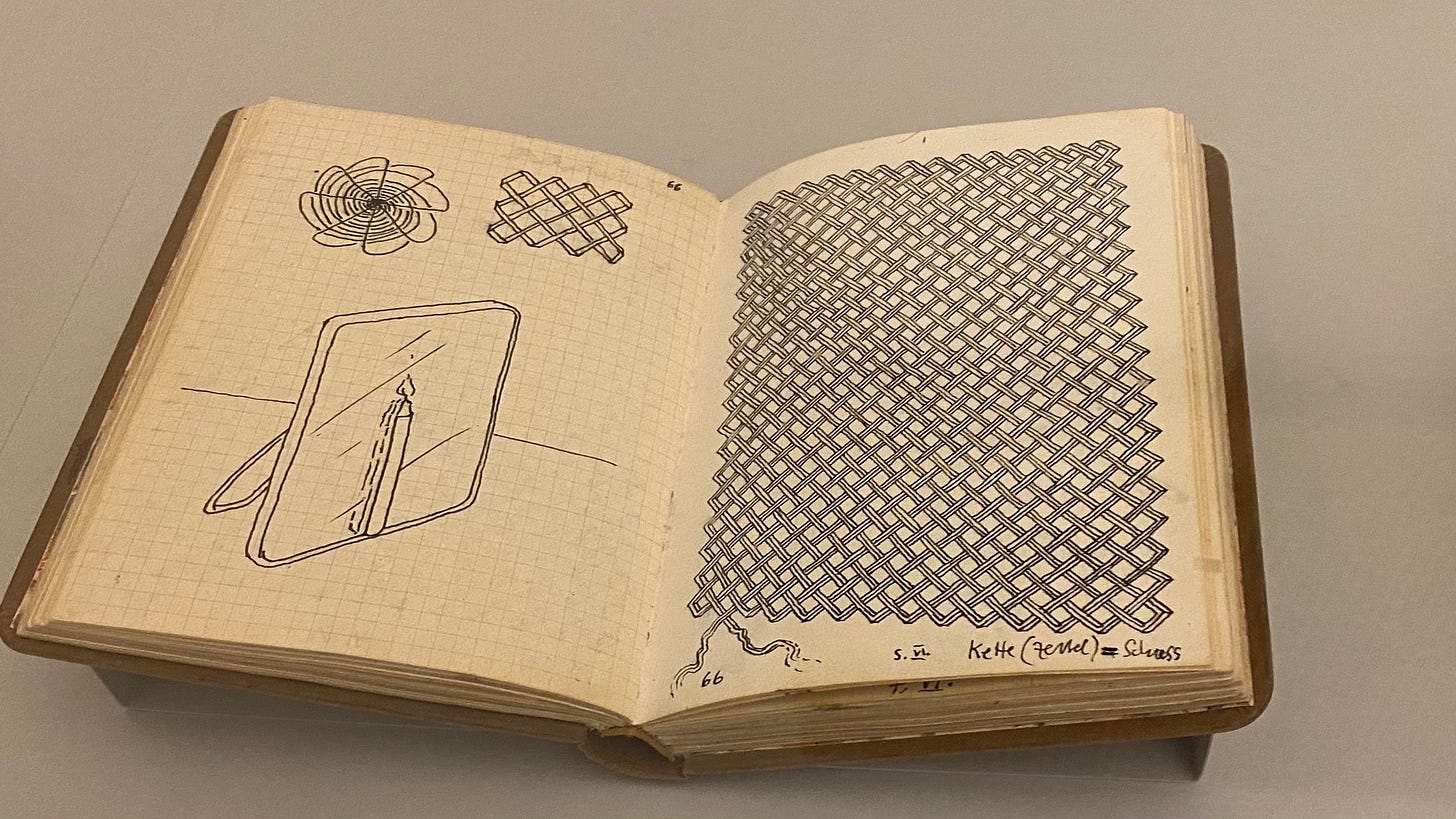 66
66
S. VI. Kette (Zettel) = Schuss